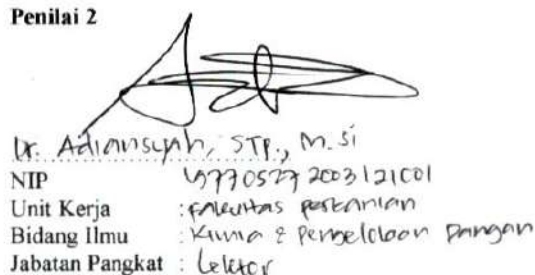 Penilai 2
Dr. Adiansyah, STP., M.Si
NIP 19770527 200312 1001
Unit Kerja : Fakultas Pertanian
Bidang Ilmu : Kimia & Pengelolaan Pangan
Jabatan Pangkat : Lektor